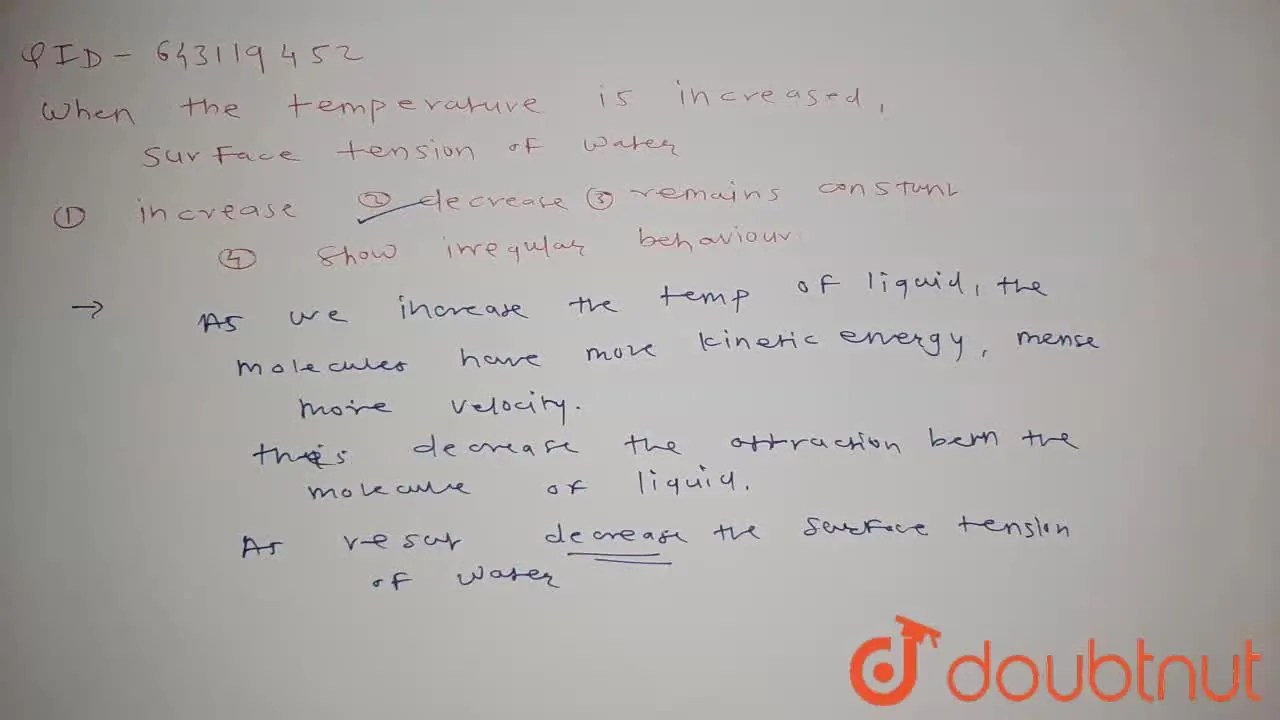 QID - 643119452
When the temperature is increased,
surface tension of water
① increase ② decrease ③ remains constant
④ show irregular behaviour
→ As we increase the temp of liquid, the
molecules have more kinetic energy, mense
more velocity.
this decrease the attraction betn the
molecule of liquid.
As resut decrease the surface tension
of water
doubtnut